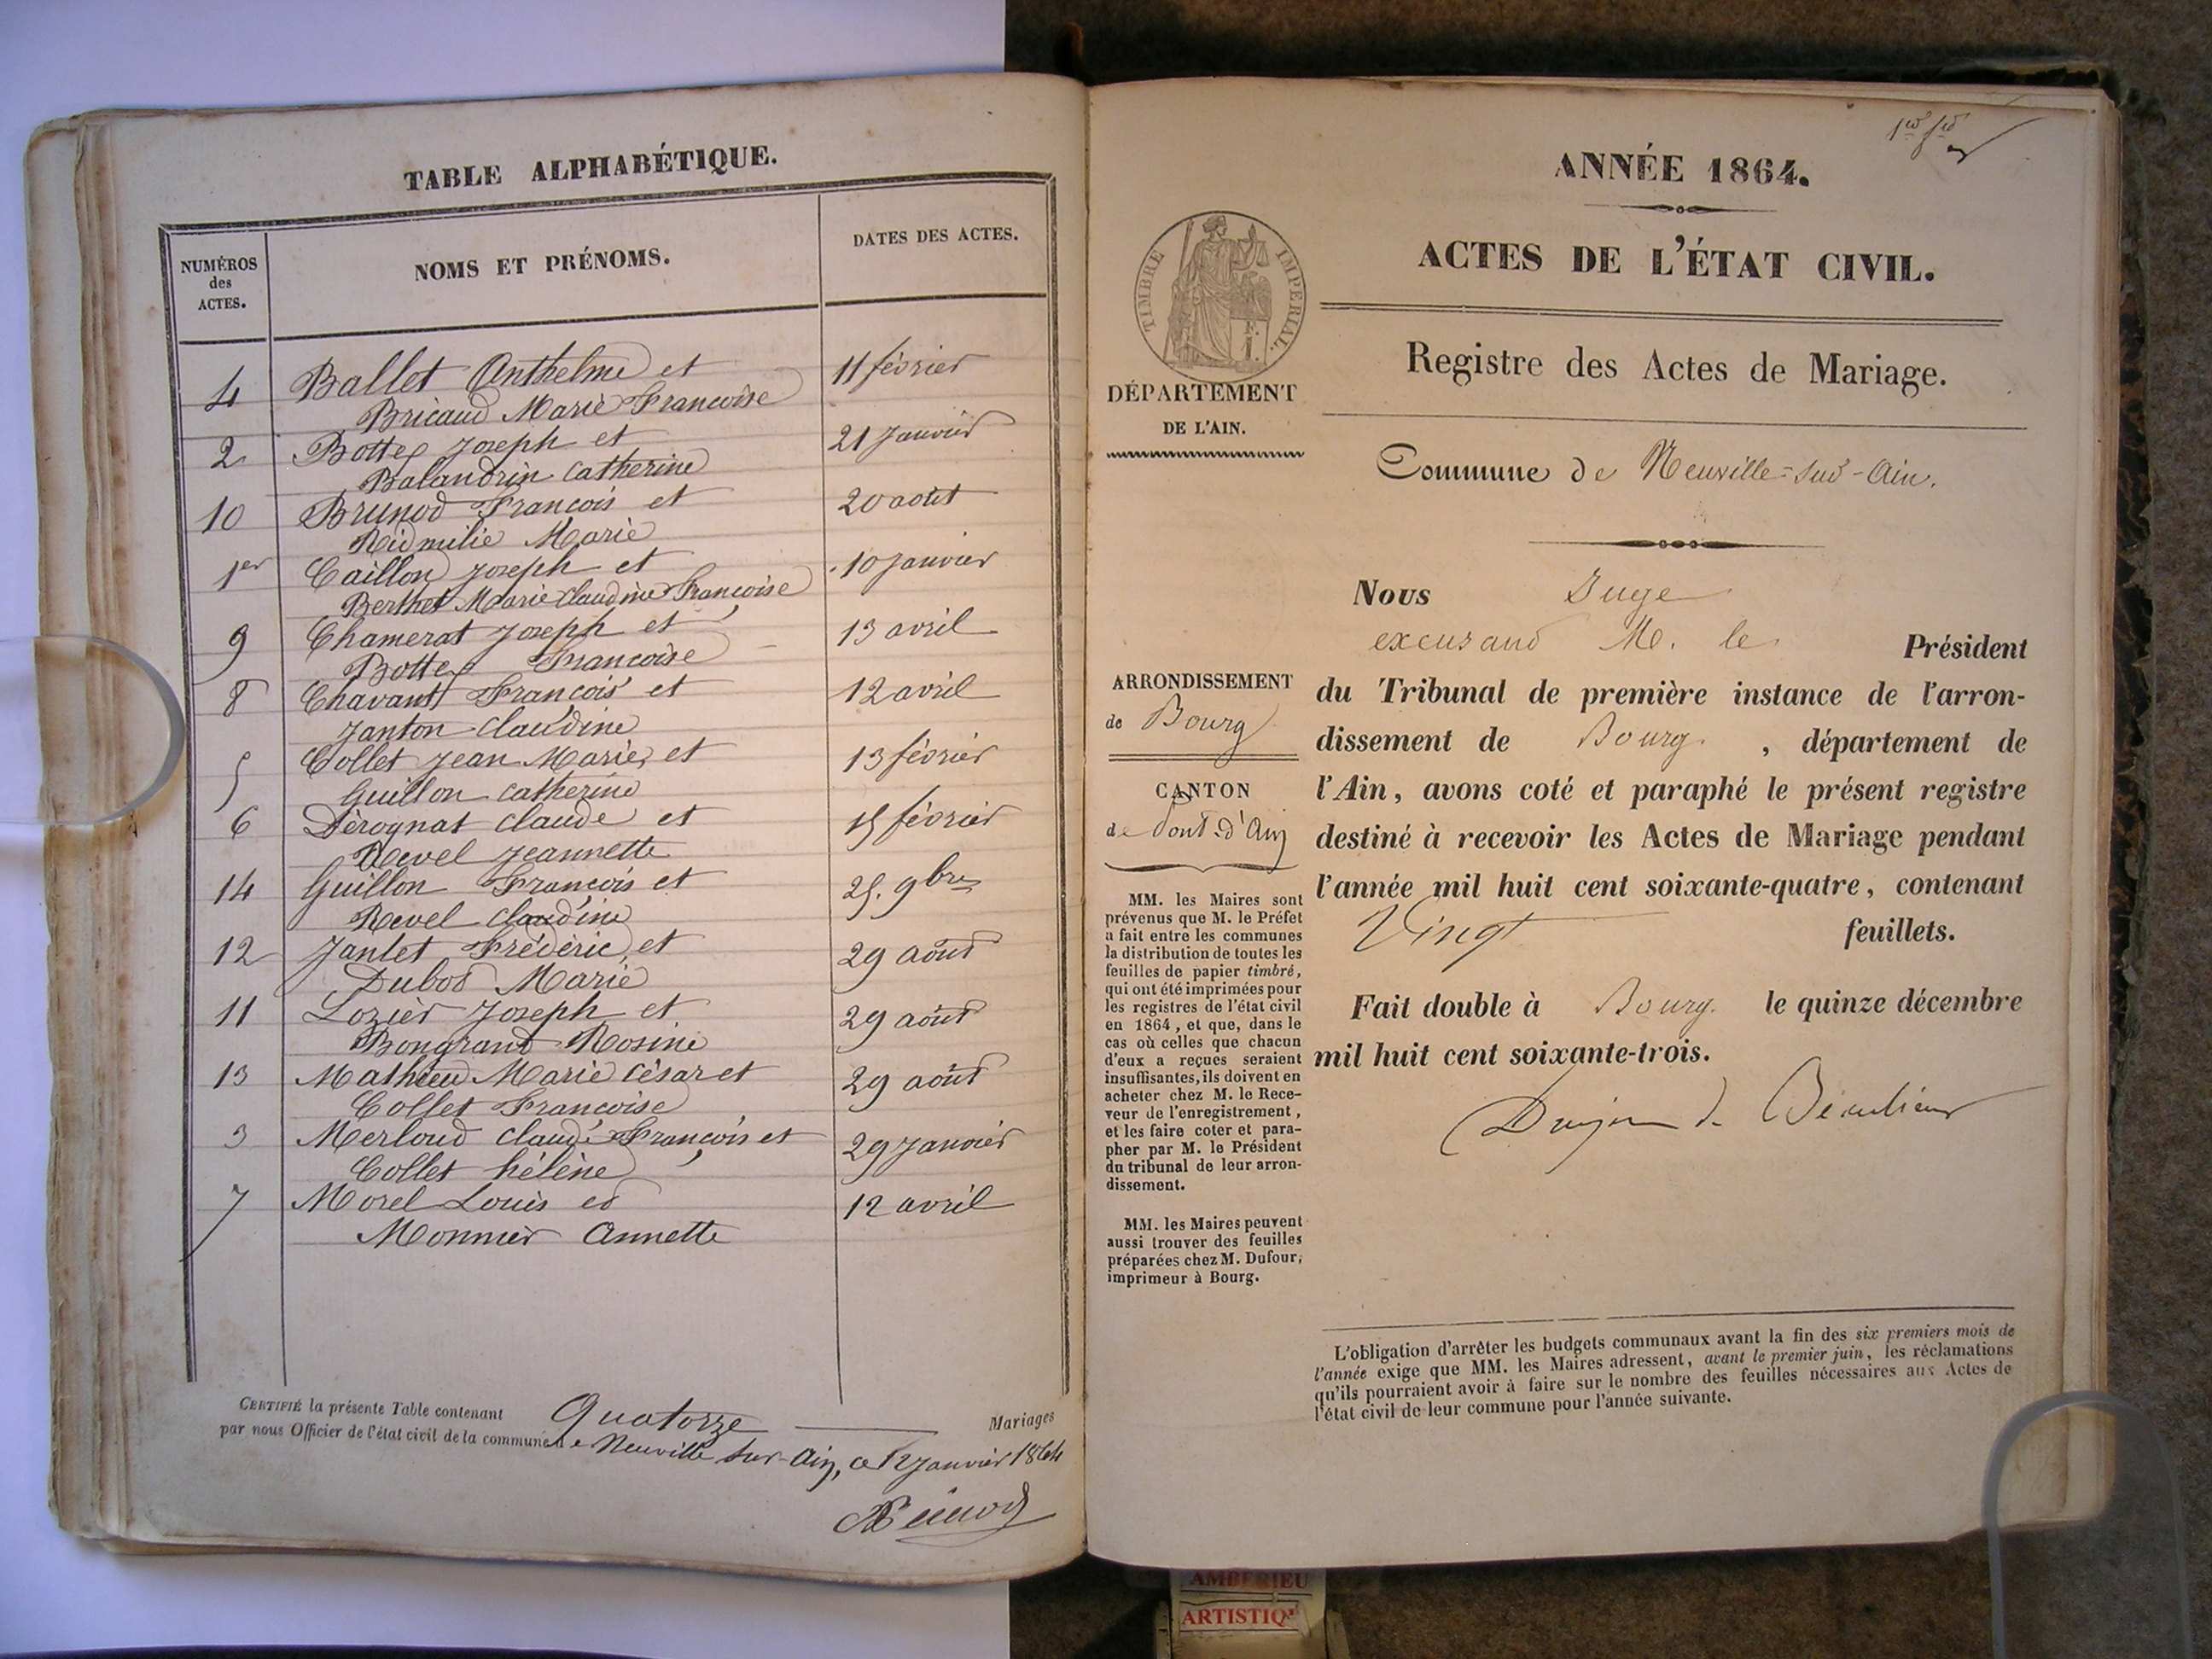 TABLE ALPHABÉTIQUE.
NUMÉROS
des
ACTES.
NOMS ET PRÉNOMS.
DATES DES ACTES.
4 Ballet Anthelme et 11 février
Bricaud Marie Françoise
2 Bottex Joseph et 21 janvier
Balandrin Catherine
10 Brunod François et 20 août
Nidmilie Marie
1er Caillon Joseph et 10 janvier
Berthet Marie Claudine Françoise
9 Chamerat Joseph et 13 avril
Bottex Françoise
8 Chavant François et 12 avril
Janton Claudine
5 Collet Jean Marie, et 13 février
Guillon Catherine
6 Dérognat Claude et 15 février
Revel Jeannette
14 Guillon François et 25. 9bre
Revel Claudine
12 Jantet Frédéric, et 29 août
Dubos Marie
11 Lozier Joseph et 29 août
Bongrand Rosine
13 Mathieu Marie César et 29 août
Collet Françoise
3 Merloud Claude François et 29 janvier
Collet hélène
7 Morel Louis et 12 avril
Monnier Annette
CERTIFIÉ la présente Table contenant Quatorze Mariages
par nous Officier de l'état civil de la commune de Neuville sur Ain, ce 12 janvier 1864
ANNÉE 1864.
ACTES DE L'ÉTAT CIVIL.
TIMBRE IMPÉRIAL.
Registre des Actes de Mariage.
DÉPARTEMENT
DE L'AIN.
Commune de Neuville-sur-Ain.
Nous Juge
excusand M. le Président
du Tribunal de première instance de l'arron-
dissement de Bourg. , département de
l'Ain, avons coté et paraphé le présent registre
destiné à recevoir les Actes de Mariage pendant
l'année mil huit cent soixante-quatre, contenant
Vingt feuillets.
Fait double à Bourg. le quinze décembre
mil huit cent soixante-trois.
ARRONDISSEMENT
de Bourg
CANTON
de Pont-d'Ain
MM. les Maires sont
prévenus que M. le Préfet
a fait entre les communes
la distribution de toutes les
feuilles de papier timbré,
qui ont été imprimées pour
les registres de l'état civil
en 1864, et que, dans le
cas où celles que chacun
d'eux a reçues seraient
insuffisantes, ils doivent en
acheter chez M. le Rece-
veur de l'enregistrement,
et les faire coter et para-
pher par M. le Président
du tribunal de leur arron-
dissement.
MM. les Maires peuvent
aussi trouver des feuilles
préparées chez M. Dufour,
imprimeur à Bourg.
L'obligation d'arrêter les budgets communaux avant la fin des six premiers mois de
l'année exige que MM. les Maires adressent, avant le premier juin, les réclamations
qu'ils pourraient avoir à faire sur le nombre des feuilles nécessaires aux Actes de
l'état civil de leur commune pour l'année suivante.
AMBERIEU
ARTISTIQ